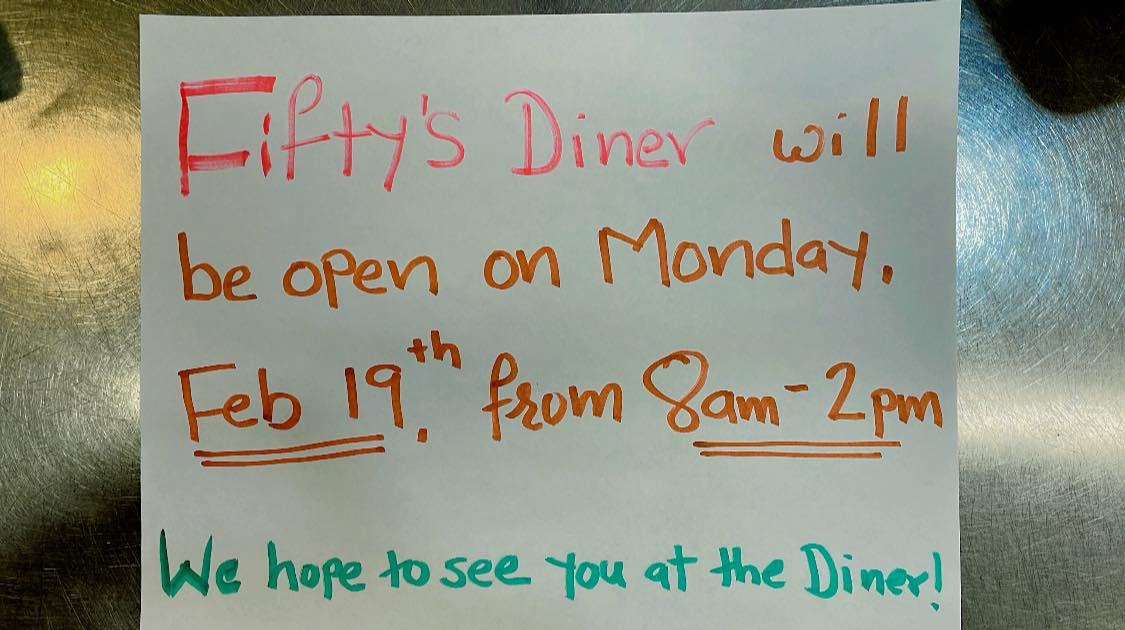 Fifty's Diner will
be open on Monday.
Feb 19th. from 8am-2pm
We hope to see you at the Diner!